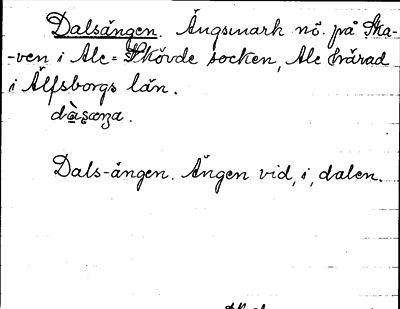 Dalsängen. Ängsmark nö. på Ska-
-ven i Ale-Skövde socken, Ale härad
i Älfsborgs län.
Dals-ängen. Ängen vid, i, dalen.